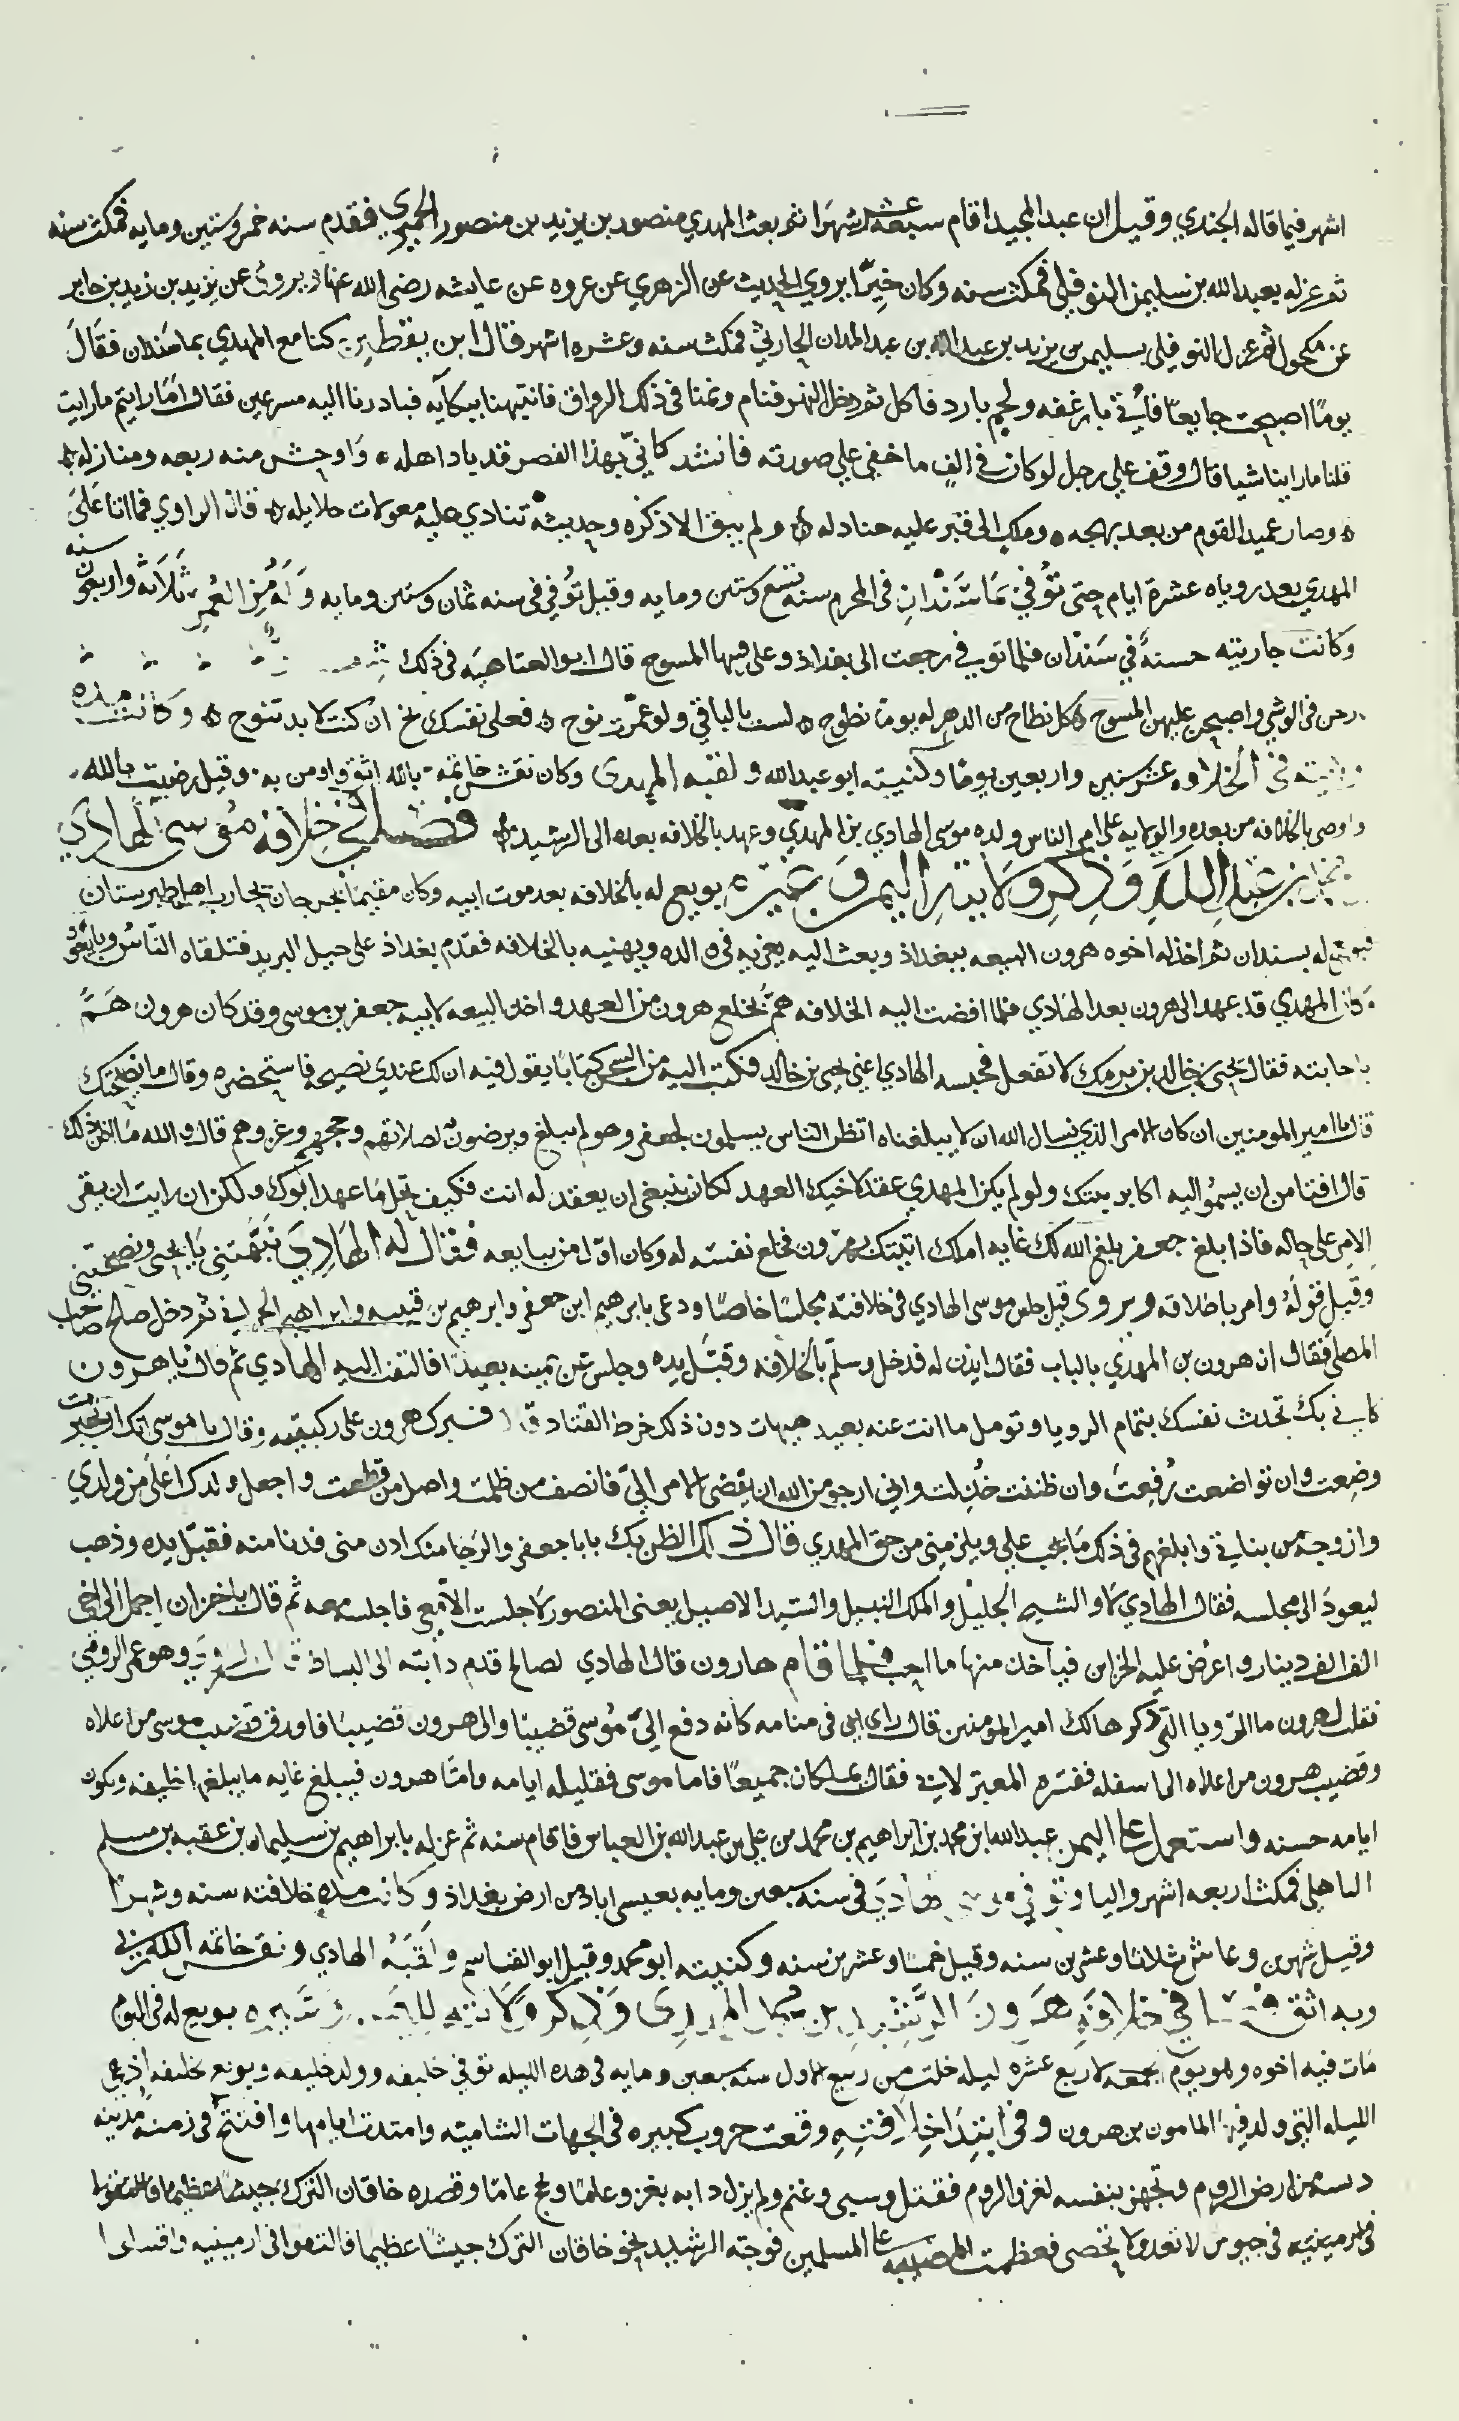 اشهر فيما قاله الجندي وقيل ان عبد المجيد اقام سبعه عشر شهرا ثم بعث المهدي منصور بن يزيد بن منصور الحميري فقدم سنه خمس وستين ومايه فمكث سنه
ثم عزله بعبد الله بن سليمن النوفلي فمكث سنه وكان خيرًا يروي الحديث عن الزهري عن عروه عن عايشه رضي الله عنها ويروي عن يزيد بن زيد بن جابر
عن مكحول ثم عزل النوفلي بسليمن بن يزيد بن عبد الله بن عبد المدان الحارثي فمكث سنه وعشره اشهر قال ابن يقطين كنا مع المهدي بماسندان فقال
يومًا اصبحت جايعًا فأتي بارغفه ولحم بارد فاكل ثم دخل البهو فنام ونمنا في ذلك الرواق فانتبهنا ببكايه فبادرنا اليه مسرعين فقال اما رايتم ما رايت
قلنا ما راينا شيا قال وقف علي رجل لو كان في الف ما خفي علي صورته فانشد كاني بهذا القصر قد باد اهله واوحش منه ربعه ومنازله
وصار عميد القوم من بعد بهجه وملك الى قبر عليه جنادله ولم يبق الا ذكره وحديثه تنادي عليه معولات حلايله قال الراوي فما اتا على
المهدي بعد روياه عشرة ايام حتى توفي بماسندان في المحرم سنه تسع وستين ومايه وقيل توفي في سنه ثمان وستين ومايه وله من العمر ثلاثه واربعون سنه
وكانت جاريته حسنة في سندان فلما توفي رجعت الى بغداد وعلى قبتها المسوح قال ابو العتاهيه في ذلك
رحن في الوشي واصبحن عليهن المسوح كل نطاح من الدهر له يوما نطوح لست بالباقي ولو عمرت نوح فعلى نفسك نح ان كنت لا بد تنوح وكانت مده
في الخلافه عشر سنين واربعين يومًا وكنيته ابو عبد الله ولقبه المهدي وكان نقش خاتمه بالله اثق واومن به وقيل رضيت بالله
واوصى بالخلافه من بعده والولايه على امر الناس ولده موسى الهادي بن المهدي وعهد بالخلافه بعده الى الرشيد فصل في خلافة موسى الهادي
بن عبد الله وذكر ولايته اليمن وغيره بويع له بالخلافه بعد موت ابيه وكان مقيمًا بجرجان يحارب اهل طبرستان
فبويع له بسندان ثم اخذ له اخوه هرون البيعه ببغداد وبعث اليه يعزيه في والده ويهنيه بالخلافه فقدم بغداد على خيل البريد فتلقاه الناس وبايعوه
وكان المهدي قد عهد الى هرون بعد الهادي فلما افضت اليه الخلافه هم بخلع هرون من العهد واخذ البيعه لابنه جعفر بن موسى وقد كان هرون هم
باجابته فقال يحيى بن خالد بن برمك لا تفعل فحبسه الهادي اعني يحيى بن خالد فكتب اليه من السجن كتابًا يقول فيه ان لك عندي نصيحه فاستحضره وقال ما نصيحتك
قال يا امير المومنين ان كان الامر الذي نسال الله ان لا يبلغناه اتظن الناس يسلمون لجعفر وهو لم يبلغ ويرضونه لصلاتهم وحجهم وغزوهم قال والله ما اظن ذلك
قال افتامن ان يسمو اليه اكابر بيتك ولو لم يكن المهدي عقد لاخيك العهد لكان ينبغي ان يعقد له انت فكيف تحل ما عهد ابوك ولكن ان رايت ان يقر
الامر على حاله فاذا بلغ جعفر بلغ الله لك غايه املك اتيتك بهرون فخلع نفسه له وكان اول من يبايعه فقال له الهادي نبهتني يا يحيى ونصحتني
وقبل قوله وامر باطلاقه وروى قيل جلس موسى الهادي في خلافته مجلسًا خاصًا ودعى بابرهيم ابن جعفر وابرهيم بن قتيبه وابراهيم الحراني ثم دخل صالح صاحب
المصلى فقال ان هرون بن المهدي بالباب فقال ايذن له فدخل وسلم بالخلافه وقبل يده وجلس عن يمينه بعيدًا فالتفت اليه الهادي ثم قال يا هرون
كاني بك تحدث نفسك بتمام الرويا وتومل ما انت عنه بعيد هيهات دون ذلك خرط القتاد فبرك هرون على ركبتيه وقال يا موسى انك ان تجبرت
وضعت وان تواضعت رفعت وان ظلمت خذلت واني ارجو من الله ان يفضي الامر الي فانصف من ظلمت واصل من قطعت واجعل ولدك اعلى من ولدي
وازوجه من بناتي وابلغهم في ذلك ما يجب علي ويلزمني من حق المهدي قال ذلك الظن بك يابا جعفر والرجا منك ادن مني فدنا منه فقبل يده وذهب
ليعود الى مجلسه فقال الهادي لا والشيخ الجليل والملك النبيل والسيد الاصيل يعني المنصور لا جلست الا معي فاجلسه معه ثم قال يا خزان احمل الى اخي
الف الف دينار واعرض عليه الخزاين فياخذ منها ما احب فلما قام هارون قال الهادي لصالح قدم دابته الى البساط وهو عمر الرومي
فقلت لهرون ما الرويا التي ذكرها لك امير المومنين قال راى ابي في منامه كانه دفع الى موسى قضيبًا والى هرون قضيبًا فاورق قضيب موسى من اعلاه
وقضيب هرون من اعلاه الى اسفله ففسره المعبر لابي فقال يملكان جميعًا فاما موسى فقليله ايامه وامّا هرون فيبلغ غايه ما يبلغها خليفه وتكون
ايامه حسنه واستعمل على اليمن عبد الله بن محمد بن ابراهيم بن محمد بن علي بن عبد الله بن العباس فاقام سنه ثم عزله بابراهيم بن سليمان بن عقبه بن مسلم
الباهلي فمكث اربعه اشهر واليا وتوفي موسى الهادي في سنه سبعين ومايه بعيسى اباد من ارض بغداد وكانت مده خلافته سنه وشهرا
وقيل شهرين وعاش ثلاثًا وعشرين سنه وقيل خمسًا وعشرين سنه وكنيته ابو محمد وقيل ابو القاسم ولقبه الهادي ونقش خاتمه الله ربي
وبه اثق فصل في خلافة هرون الرشيد بن محمد المهدي وذكر ولايته لليمن وغيره بويع له في اليوم
مات فيه اخوه وهو يوم الجمعه لاربع عشره ليله خلت من ربيع الاول سنه سبعين ومايه في هذه الليله توفي خليفه وولد خليفه وبويع خليفه اذ هي
الليله التي ولد فيها المامون بن هرون وفي ابتدا خلافته وقعت حروب كبيره في الجهات الشاميه وامتدت ايامها وافتتح في زمنه مدينه
دبسه من ارض الروم وتجهز بنفسه لغزو الروم فقتل وسبى وغنم ولم يزل دابه يغزو عامًا ويحج عامًا وقصده خاقان الترك جيشًا عظيمًا فالتقوا
في ارمينيه في جيوش لا تعد ولا تحصى فعظمت المصيبه على المسلمين فوجه الرشيد نحو خاقان الترك جيشًا عظيما فالتقوا في ارمينيه واقتتلوا